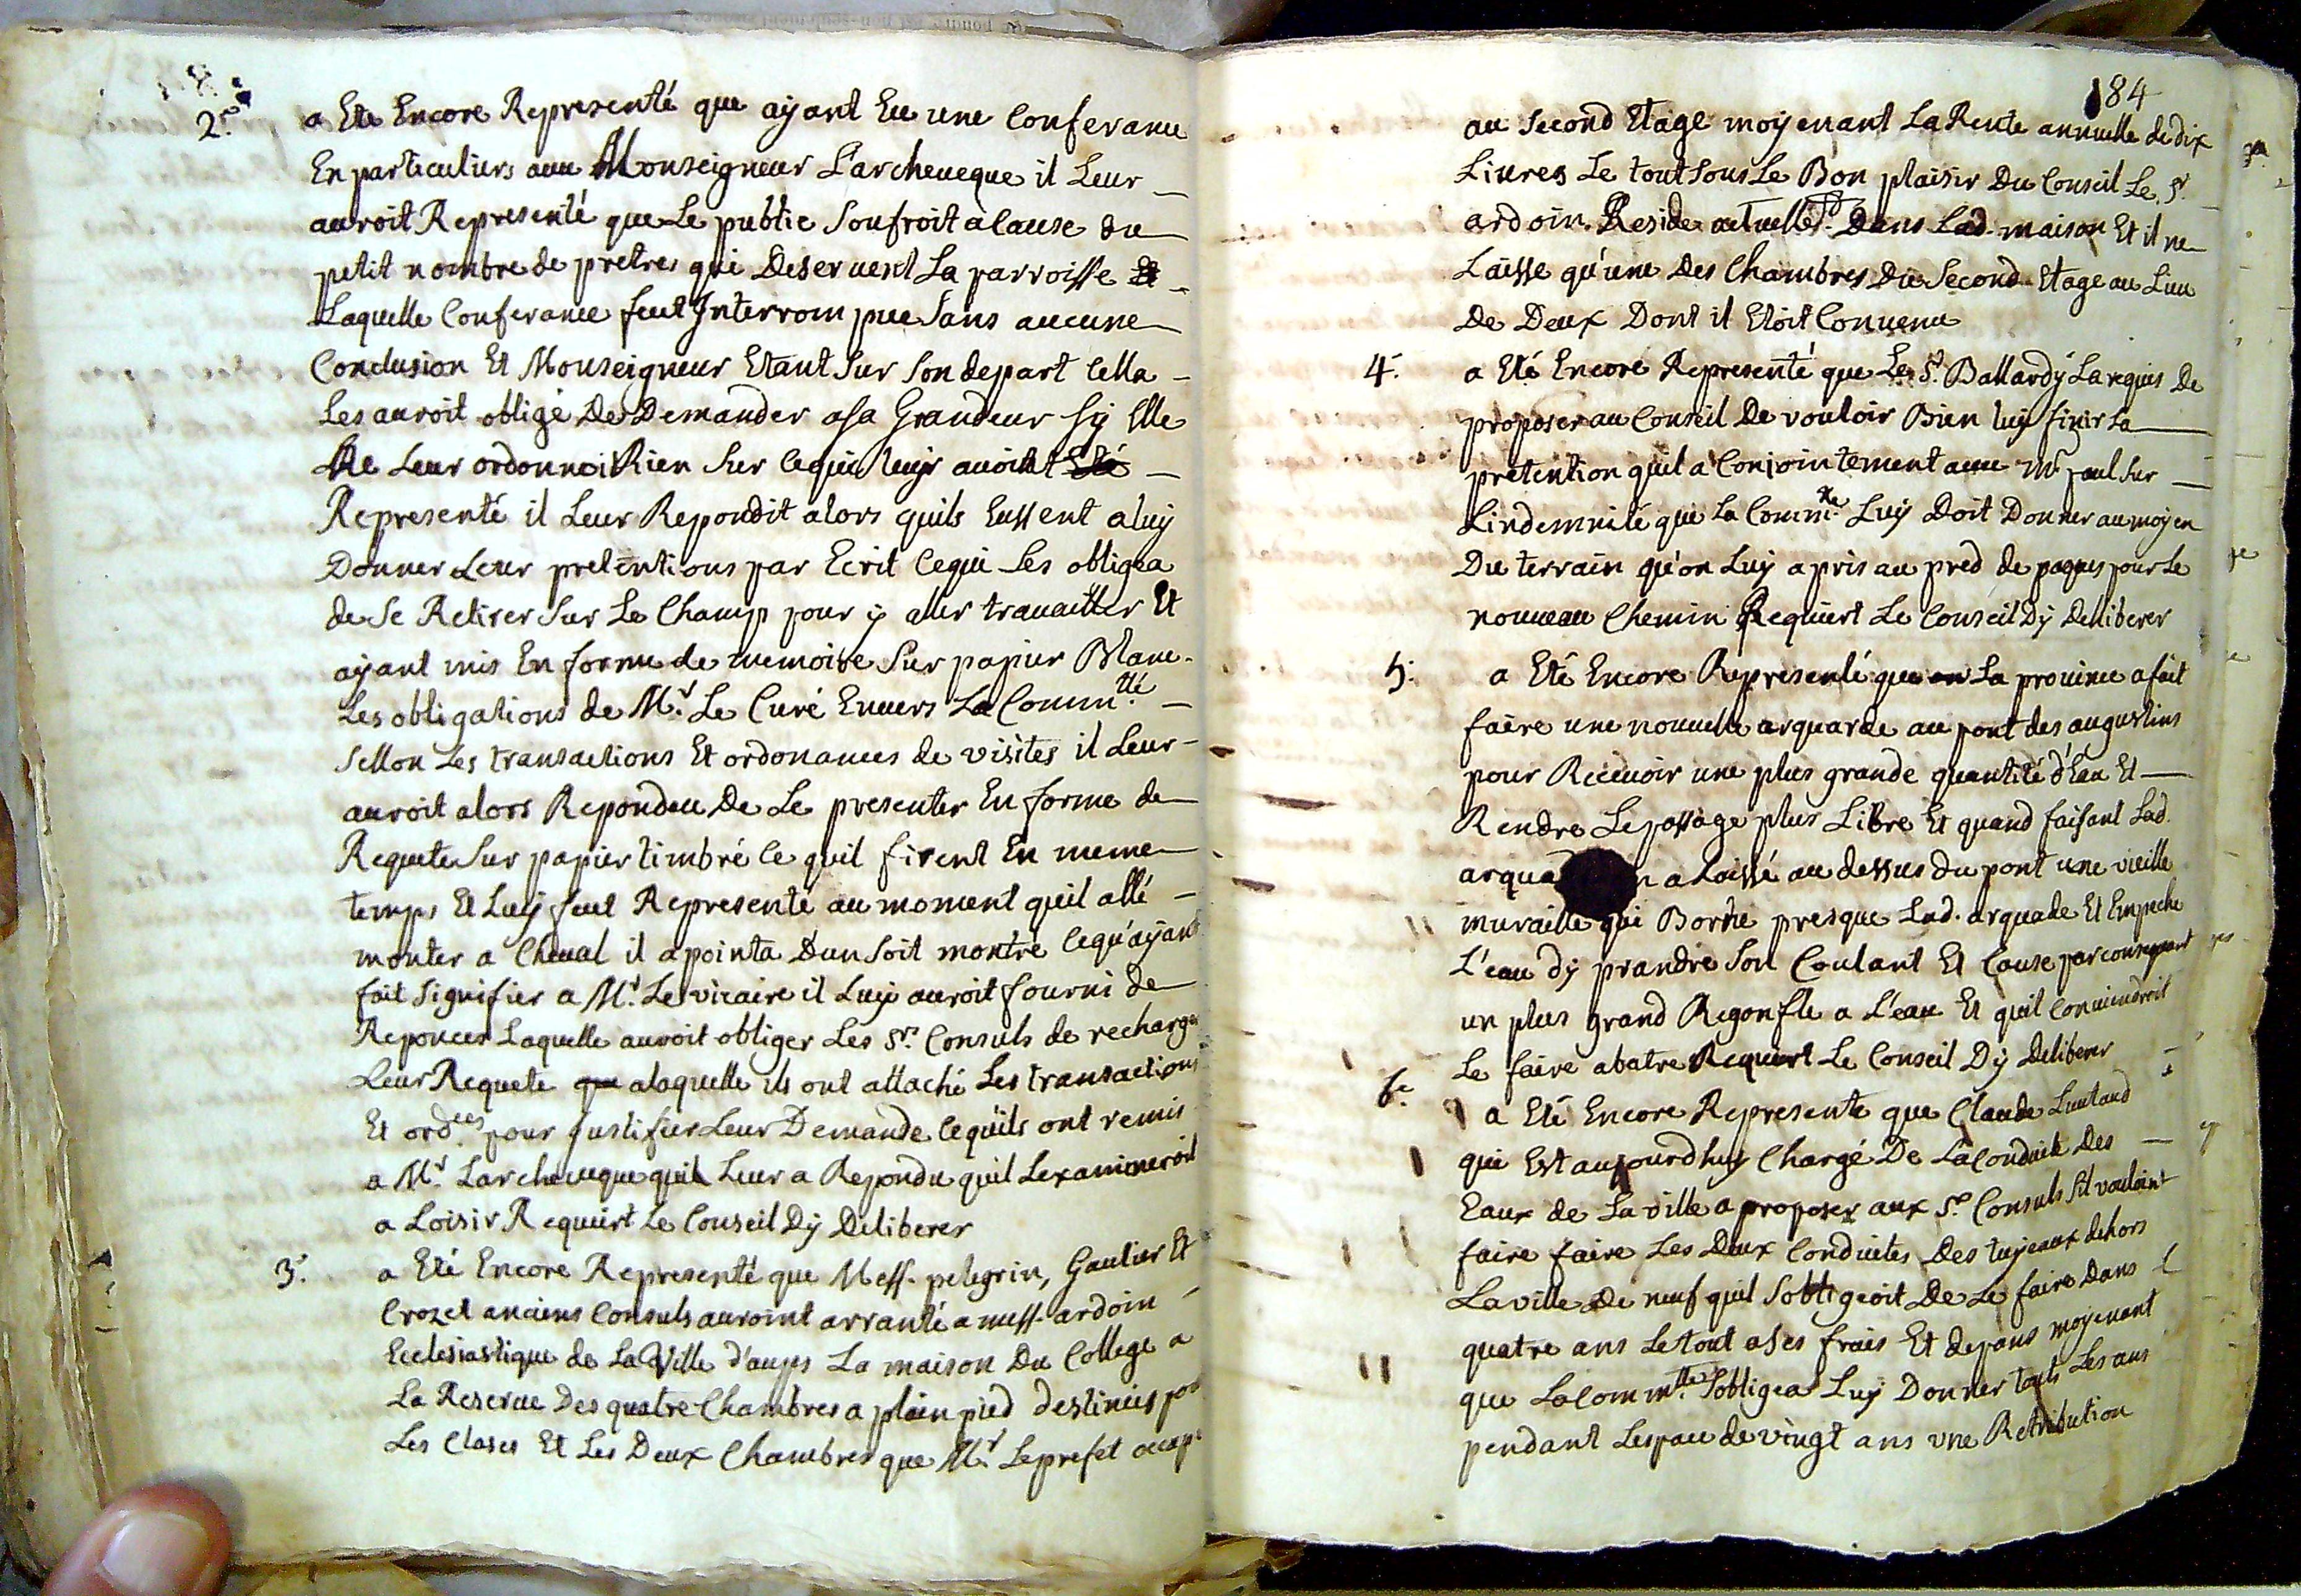 2e.
a Eté Encore Representé que aÿant Eu une Conferance
En particuliers avec Monseigneur L'archeueque il Leur
auroit Representé que Le public Soufroit a Cause du
petit nombre de pretres qui Deseruent La parroisse
Laquelle Conferance feut Interrompue Sans aucune
Conclusion Et Monseigneur Etant Sur Son depart Cella
Les auroit obligé De Demander a Sa Grandeur Sÿ Elle
Ne Leur ordonnoit Rien Sur Cequi luÿ auoint Eté
Representé il Leur Repondit alors quils Eussent a luÿ
Donner Leur pretentions par Ecrit Cequi Les obligea
de Se Retirer Sur Le Champ pour ÿ aller trauailler Et
aÿant mis En forme de memoire Sur papier Blanc
Les obligations de Mr. Le Curé Enuers La Commtté.
Sellon Les transactions Et ordonances de visites il Leur
auroit alors Repondeu De Le presenter En forme de
Requete Sur papier timbré Ce quil firent En meme
temps Et Luÿ feut Representé au moment quil allé
monter a Cheual il apointa D'un Soit montré Cequ'aÿant
fait Signifier a Mr. Le vicaire il Luÿ auroit fourni de
Reponces Laquelle auroit obliger Les Srs. Consuls de recharger
Leur Requete que alaquelle ils ont attaché Les transactions
Et ordces. pour justifier Leur Demande Cequ'ils ont remis
a Mr. Larcheueque quil Leur a Repondu quil Lexamineroit
a Loisir Requiert Le Conseil Dÿ Deliberer
3.
a Eté Encore Representé que Mess. pelegrin, Gautier Et
Crozet anciens Consuls auroint arranté a mess. ardoin
Ecclesiastique de La Ville d'aups La maison Du College a
La Reserue Des quatre Chambres a plain pied destinées pour
Les Clases Et Les Deux Chambres que Mr. Le prefet occupe
184
au Second Etage moÿenant La Rente annuelle de dix
Liures Le tout Sous Le Bon plaisir Du Conseil Le Sr.
ardoin Reside actuellet. Dans Lad. maison Et il ne
Laisse qu'une Des Chambres Du Second Etage au Lieu
De Deux Dont il Etoit Conuenu
4.
a Eté Encore Representé que Le Sr. Ballardÿ La requis De
proposer au Conseil De vouloir Bien luÿ finir La
pretention quil a Conjointement auec Mr paul Sur
Lindemnité que La Commté. Luÿ Doit Donner au moÿen
Du terrain qu'on Luÿ a pris au pred de paques pour Le
nouueau Chemin Requiert Le Conseil Dÿ Deliberer
5.
a Eté Encore Representé que La prouince a fait
faire une nouuelle arquade au pont des augustins
pour Receuoir une plus grande quantité d'Eau Et
Rendre Le passage plus Libre Et quand faisant Lad.
arqua n a Laissé au dessus du pont une vieille
muraille qui Borde presque Lad. arquade Et Empeche
L'eau dÿ prandre Son Coulant Et Cause par consequant
un plus grand Regonfle a L'eau Et quil Conuiendroit
Le faire abatre Requiert Le Conseil Dÿ Deliberer
6e.
a Eté Encore Representé que Claude Lautaud
qui Est aujourdhuÿ Chargé De La Conduite Des
Eaux de La ville a proposer aux Srs. Consuls Sil vouloint
faire faire Les Deux Conduites Des tuÿeaux dehors
La ville De neuf quil Sobligeoit De Le faire Dans
quatre ans Le tout a Ses frais Et depans moÿenant
que La Commtté. Sobligeat Luÿ Donner touts Les ans
pendant Lespace de vingt ans une Retribution